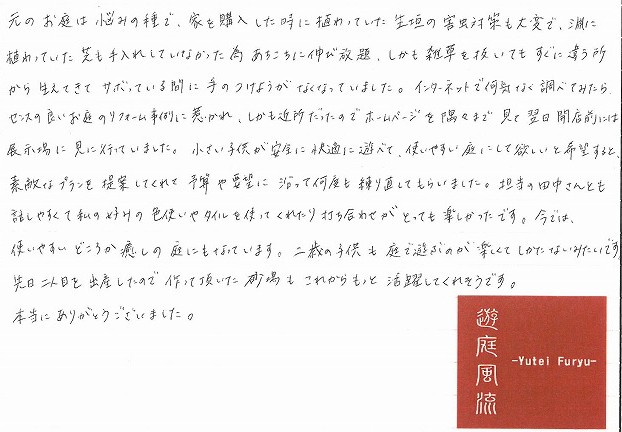 元のお庭は悩みの種で、家を購入した時に植わっていた生垣の害虫対策も大変で、源に
植わっていた芝も手入れしていなかった為あちこちに伸び放題、しかも雑草を抜いてもすぐに違う所
から生えてきてサボっている間に手のつけようがなくなっていました。インターネットで何気なく調べてみたら、
センスの良いお庭のリフォーム事例に惹かれ、しかも近所だったのでホームページを隅々まで見て翌日開店前には
展示場に見に行っていました。小さい子供が安全に快適に遊べて、使いやすい庭にして欲しいと希望すると、
素敵なプランを提案してくれて予算や要望に沿って何度も練り直してもらいました。担当の田中さんとも
話しやすくて私の好みの色使いやタイルを使ってくれたり打ち合わせがとっても楽しかったです。今では、
使いやすいどころか癒しの庭にもなっています。二歳の子供も庭で遊ぶのが楽しくてしかたないみたいです。
先日二人目を出産したので作って頂いた砂場もこれからもっと活躍してくれそうです。
本当にありがとうございました。
遊庭風流
-Yutei Furyu-